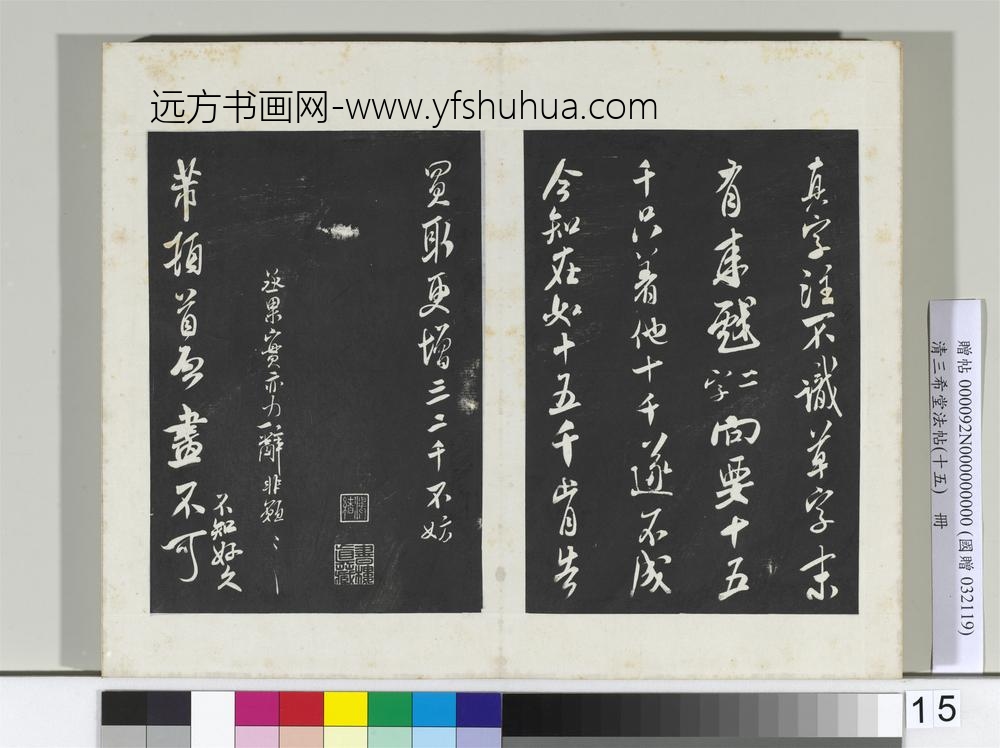 远方书画网-www.yfshuhua.com
真字注不識草字末
有来戲二字向要十五
千只着他十千遂不成
今知在如十五千肯告
買取更增三二千不妨
丞果實亦力辭非
芾頓首啓盡不可
不知好久
贈帖 000092N000000000 (國贈 032119)
清三希堂法帖(十五) 冊
15